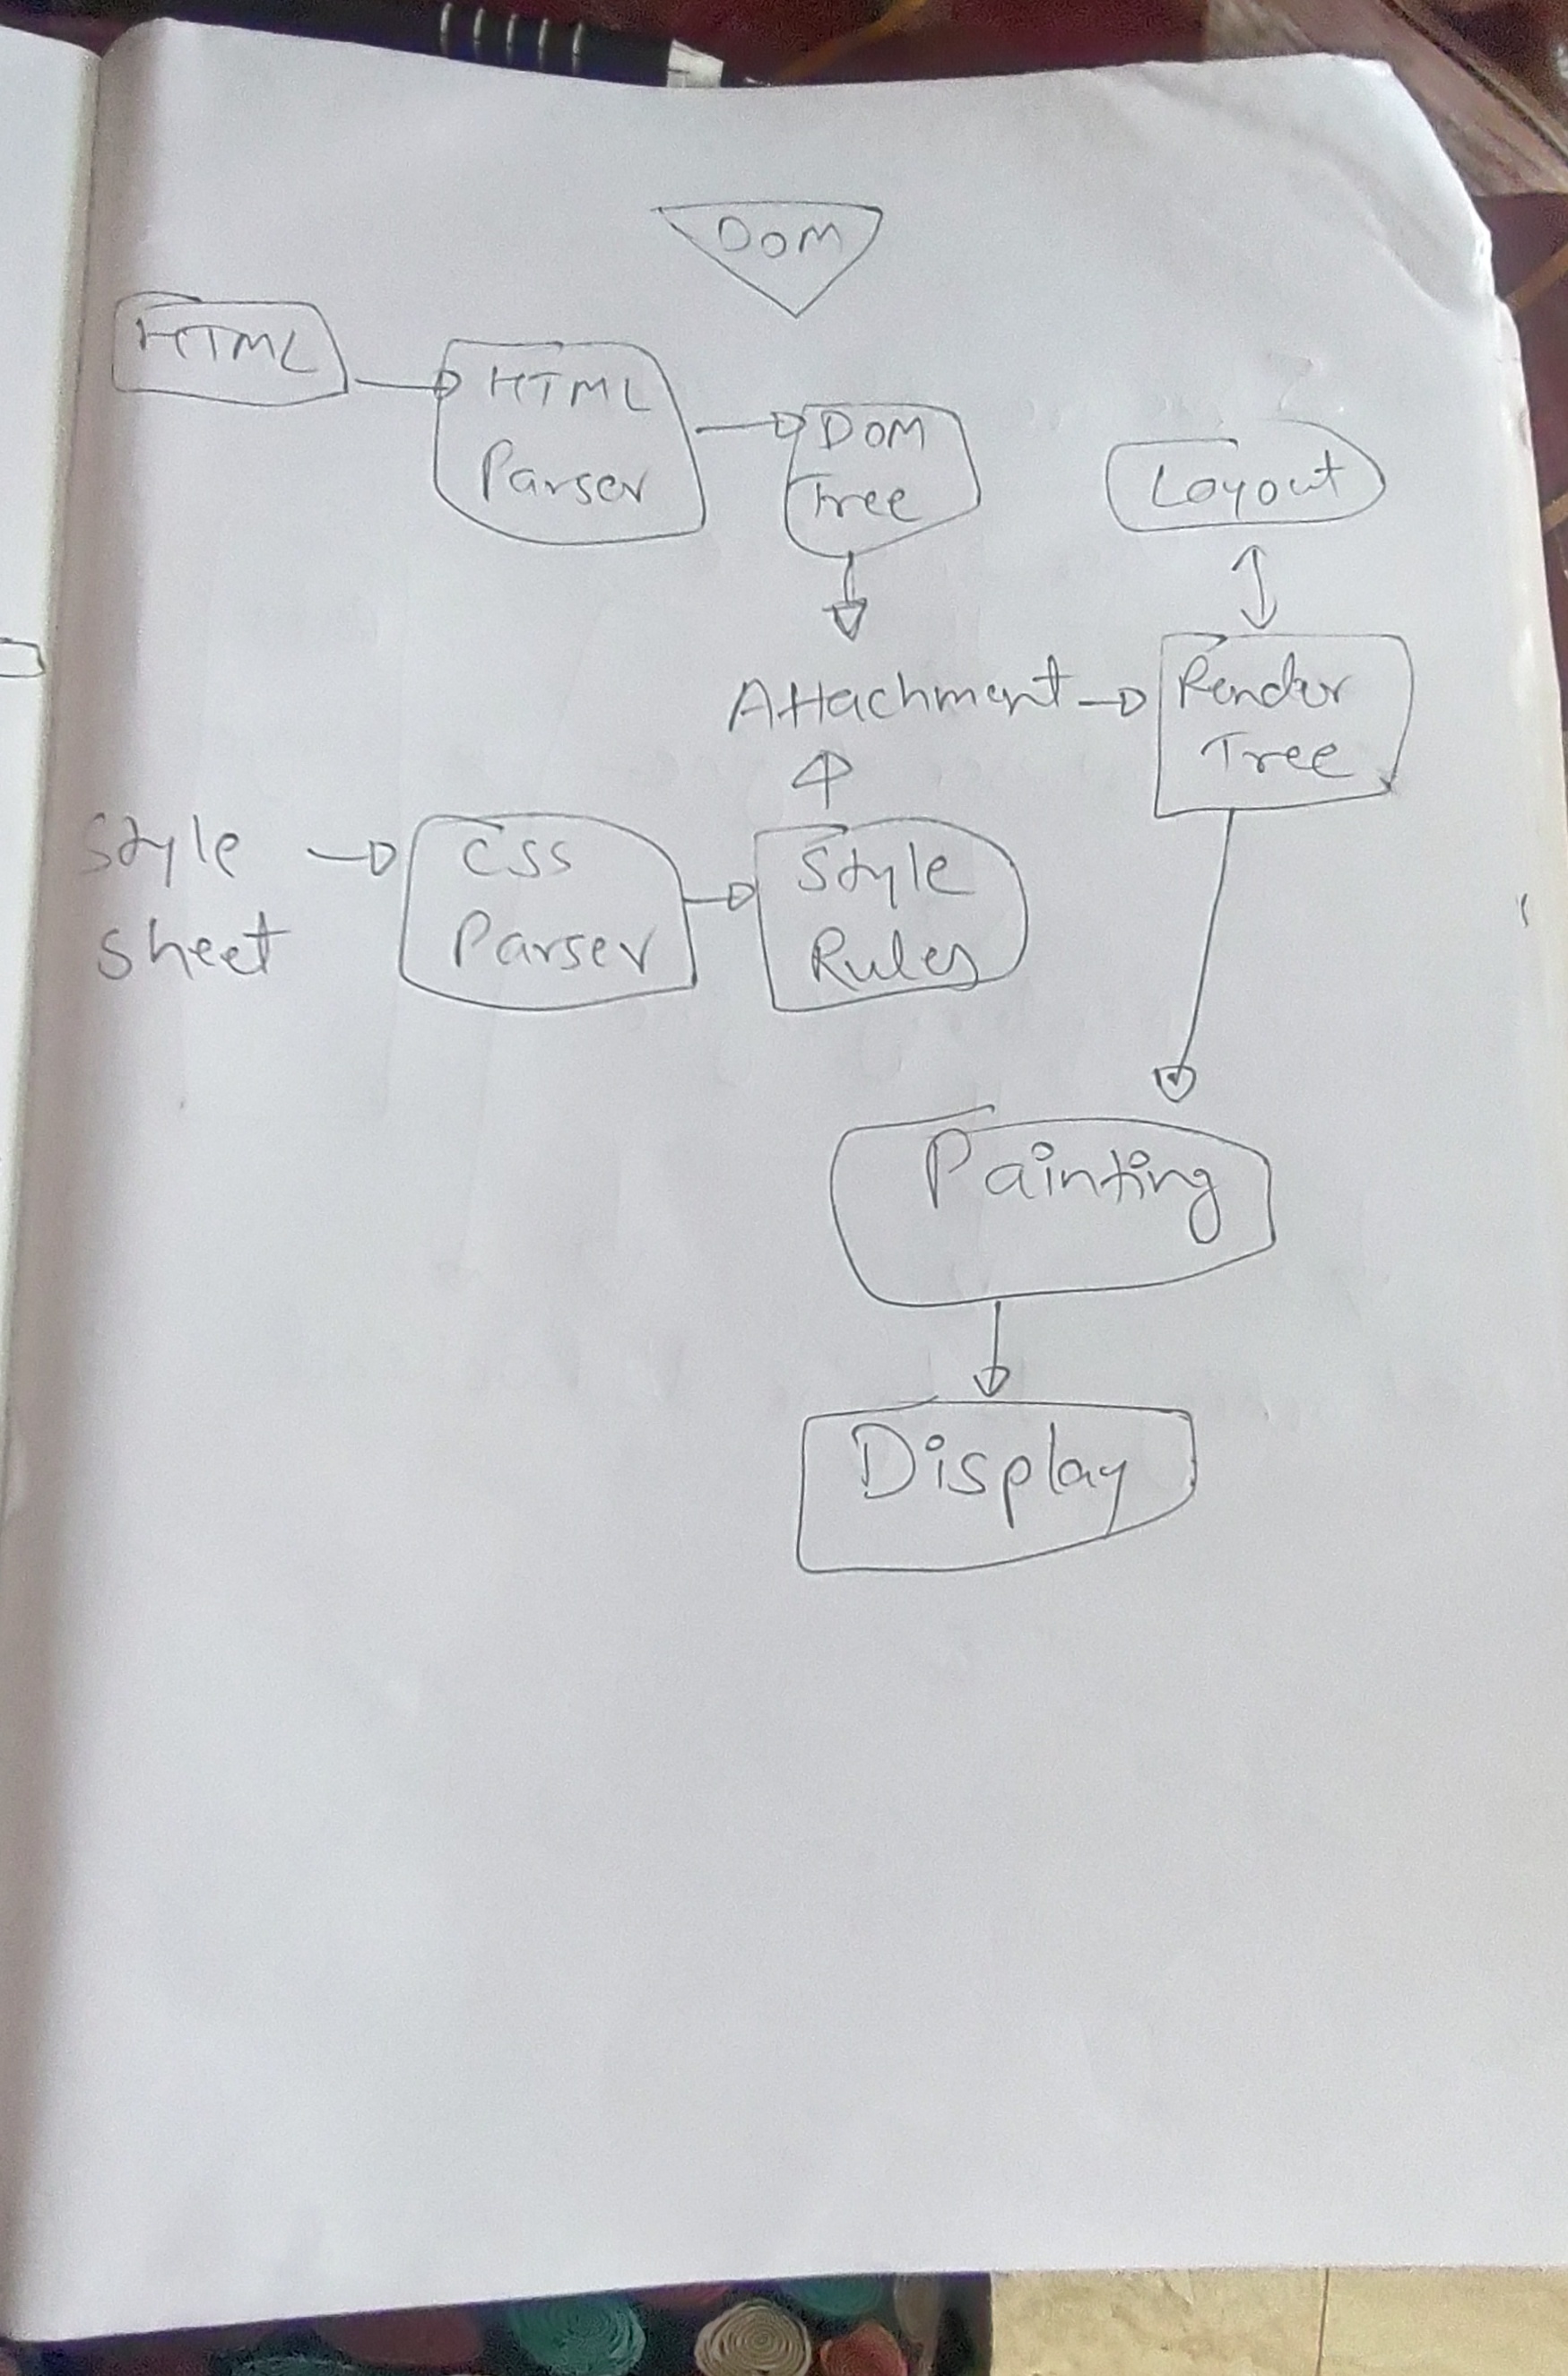 DOM
HTML
HTML
Parser
DOM
Tree
Layout
Attachment
Render
Tree
Style
Sheet
CSS
Parser
Style
Rules
Painting
Display